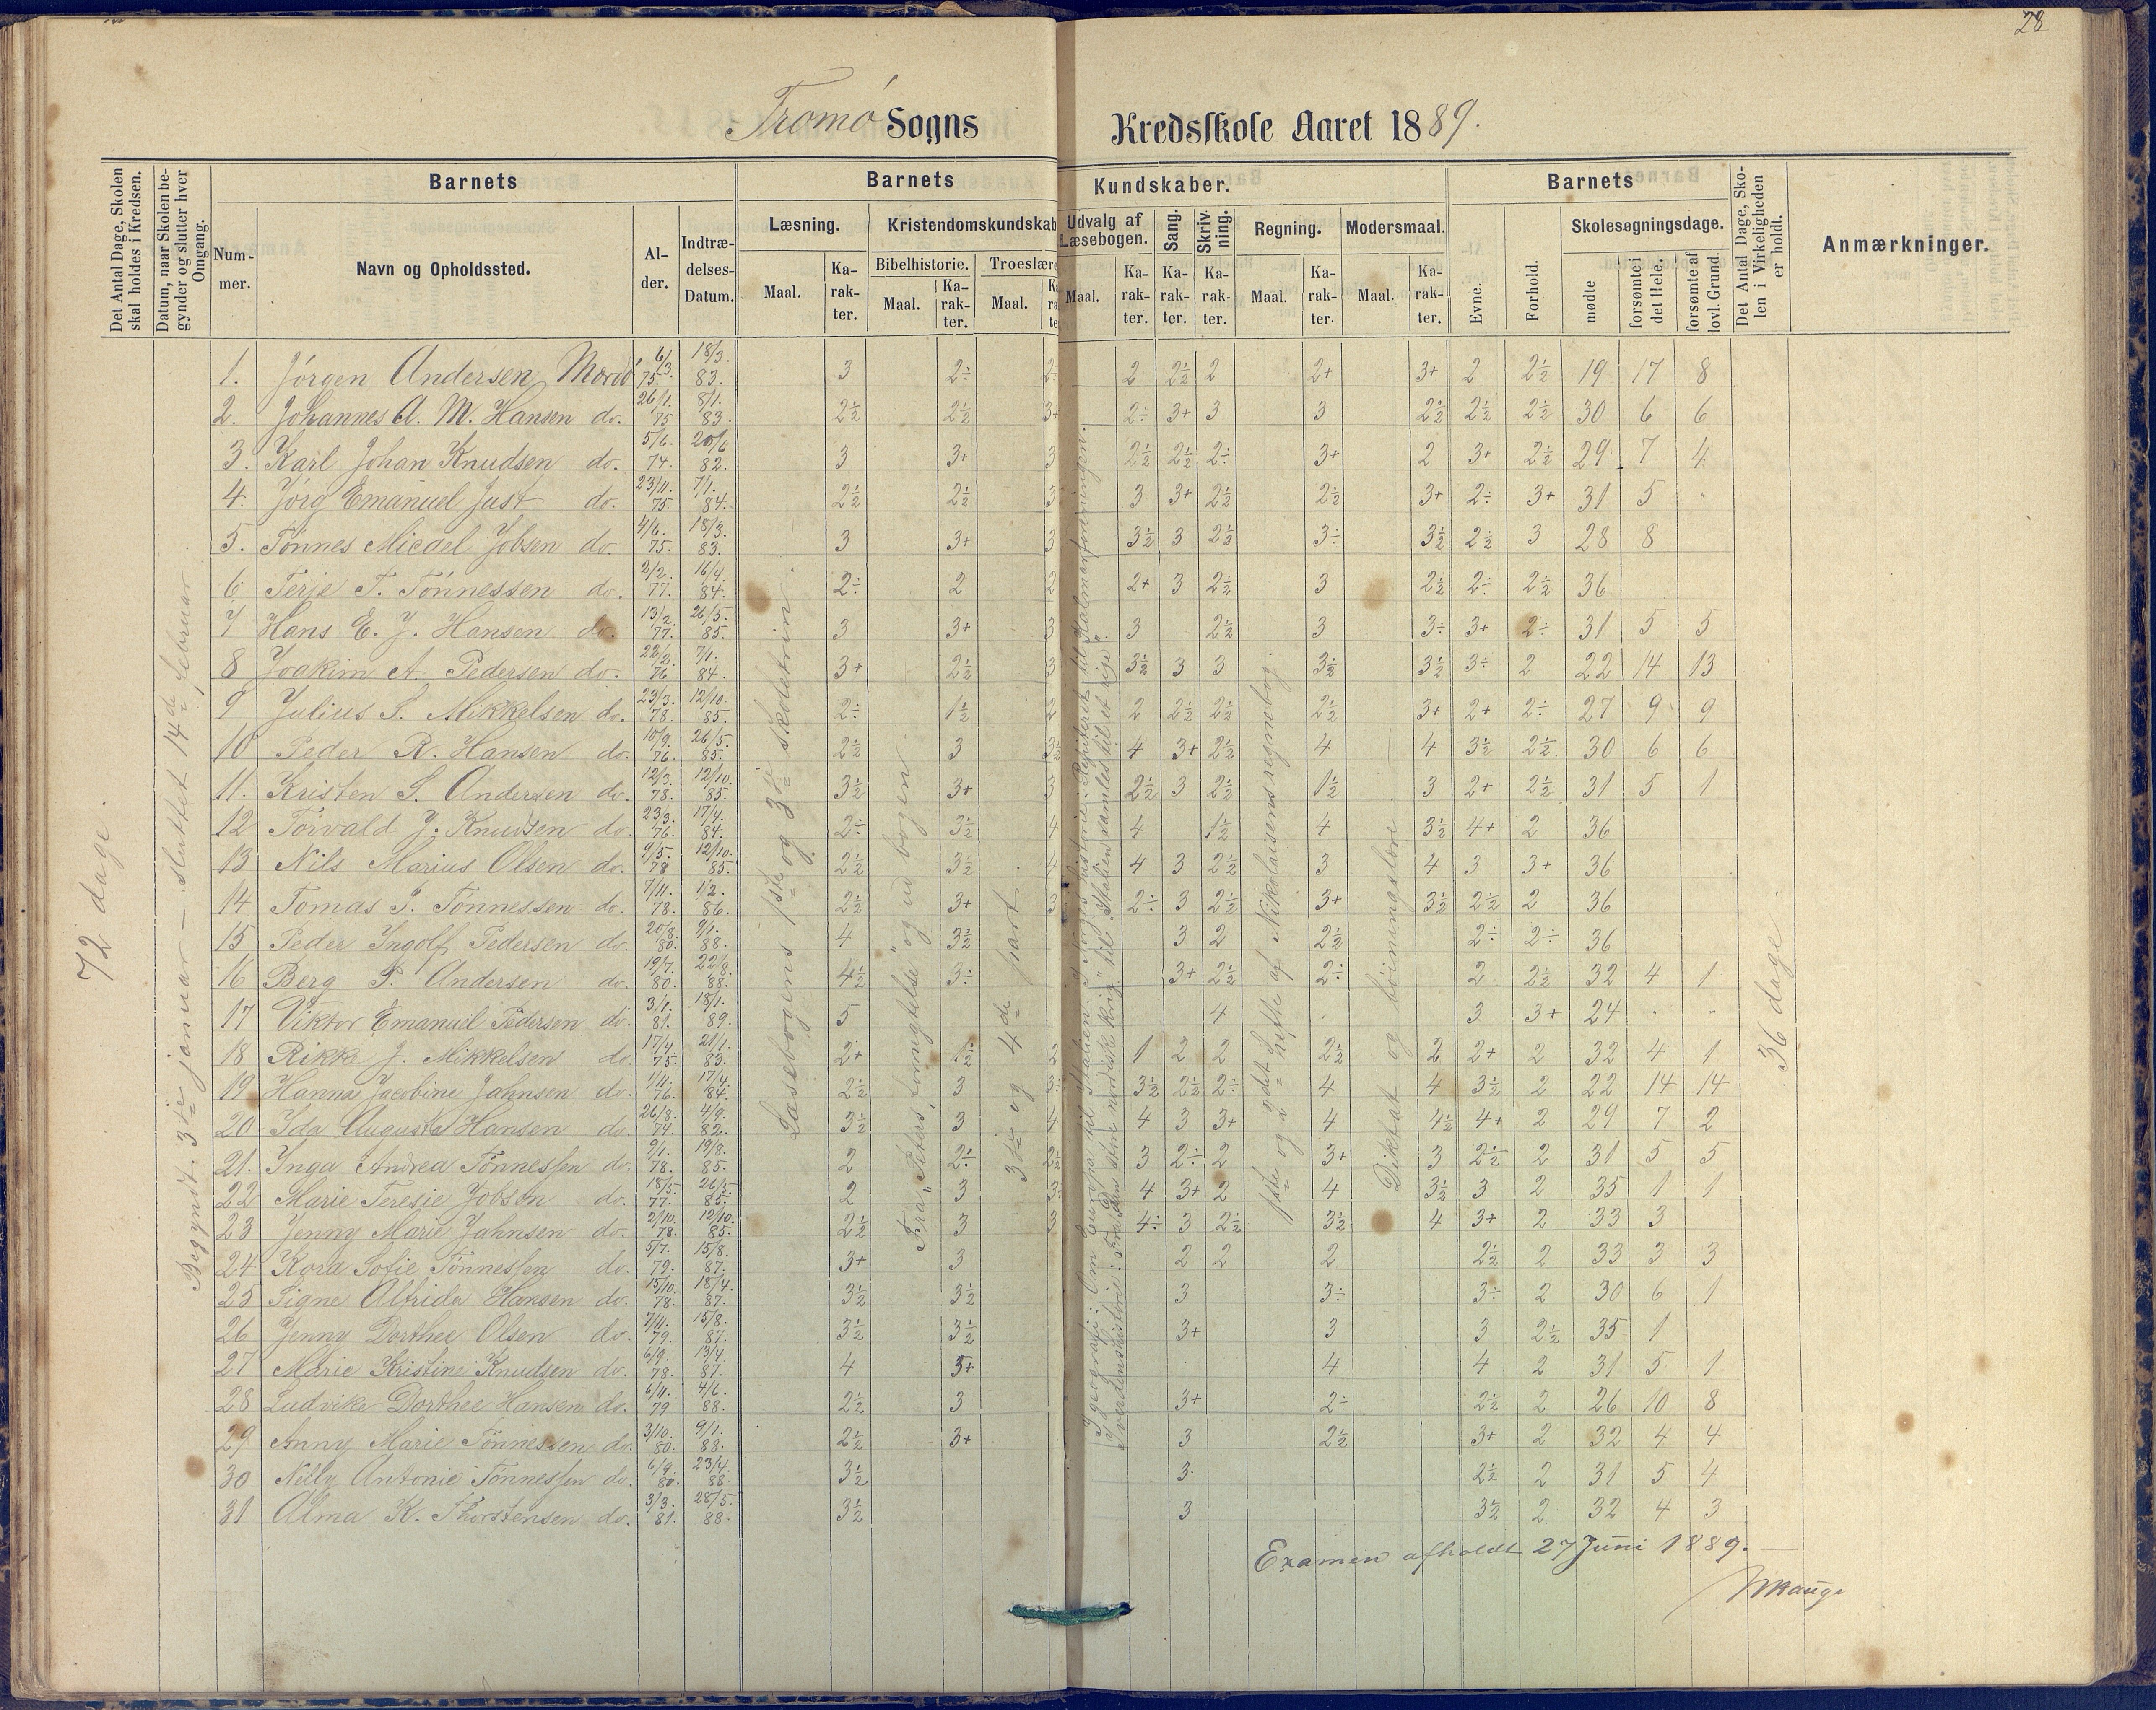 28
Tromø Sogns Kredsskole Aaret 1889.
Det Antal Dage, Skolen skal holdes i Kredsen.
Datum, naar Skolen begynder og slutter hver Omgang.
Barnets
Nummer.
Navn og Opholdssted.
Alder.
Indtrædelses-Datum.
Barnets Kundskaber.
Læsning.
Maal.
Karakter.
Kristendomskundskab
Bibelhistorie.
Maal.
Karakter.
Troeslære
Maal.
Udvalg af Læsebogen.
Maal.
Karakter.
Sang.
Karakter.
Skrivning.
Karakter.
Regning.
Maal.
Karakter.
Modersmaal.
Maal.
Karakter.
Barnets
Evne.
Forhold.
Skolesøgningsdage.
mødte
forsømte i det Hele.
forsømte af lovl. Grund.
Det Antal Dage, Skolen i Virkeligheden er holdt.
Anmærkninger.
72 dage.
Begyndt 3die januar — sluttet 14de februar.
Læsebogens 1ste og 3die skoletrin.
ud bogen.
3die og 4de part.
1ste og 2det hefte af Nikolaisens regnebog.
Diktat og bøiningslære
36 dage
1. Jørgen Andersen Mærdø 6/3. 75. 18/3. 83. 3 2÷ 2÷ 2 2½ 2 2+ 3+ 2 2½ 19 17 8
2. Johannes A. M. Hansen do. 26/1. 75 8/1. 83. 2½ 2½ 3+ 2÷ 3+ 3 3 2½ 2½ 2½ 30 6 6
3. Karl Johan Knudsen do. 5/6. 74. 20/6 82. 3 3+ 3 2½ 2½ 2÷ 3+ 2 3+ 2½ 29 7 4
4. Jørg Emanuel Just do. 23/11. 75. 7/1. 84. 2½ 2½ 3 3 3+ 2½ 2½ 3+ 2÷ 3+ 31 5
5. Tønnes Micael Jobsen do. 4/6. 75. 18/3. 83. 3 3+ 3 3½ 3 2½ 3÷ 3½ 2½ 3 28 8
6 Terje T. Tønnessen do. 2/2. 77. 16/4. 84. 2÷ 2 2 2+ 3 2½ 3 2½ 2÷ 2½ 36
7 Hans E. J. Hansen do. 13/2. 77. 26/5. 85. 3 3+ 3 3 2½ 3 3÷ 3+ 2÷ 31 5 5
8 Joakim A. Pedersen do. 22/2. 76 7/1. 84. 3+ 2½ 3 3½ 3 3 3½ 3½ 3÷ 2 22 14 13
9 Julius S. Mikkelsen do. 23/3. 78. 12/10. 85. 2÷ 1½ 2 2 2½ 2½ 2½ 3+ 2+ 2÷ 27 9 9
10 Peder R. Hansen do. 10/9. 76. 26/5. 85. 2½ 3 3½ 4 3+ 2½ 4 4 3½ 2½ 30 6 6
11. Kristen S. Andersen do. 12/3. 78. 12/10. 85. 3½ 3+ 3 2½ 3 2½ 1½ 3 2+ 2½ 31 5 1
12 Torvald J. Knudsen do. 23/3. 76. 17/4. 84. 2÷ 3½ 4 4 1½ 4 3½ 4+ 2 36
13 Nils Marius Olsen do. 9/5. 78 12/10. 85. 2½ 3½ 4 4 3 2½ 3 4 3 3+ 36
14 Tomas P. Tønnessen do. 7/11. 78. 1/2. 86. 2½ 3+ 3 2÷ 3 2½ 3+ 3½ 2½ 2 36
15 Peder Ingolf Pedersen do. 20/8. 80. 9/1. 88. 4 3½ 3 2 2½ 2÷ 2÷ 36
16 Berg P. Andersen do. 19/7. 80. 22/8. 88. 4½ 3÷ 3+ 2½ 2÷ 2 2½ 32 4 1
17 Viktor Emanuel Pedersen do. 3/1. 81. 18/1. 89. 5 4 3 3+ 24
18 Rikke J. Mikkelsen do. 17/4. 75. 21/1. 83. 2+ 1½ 2 1 2 2 2½ 2 2+ 2 32 4 1
19 Hanna Jacobine Jahnsen do. 1/11. 76. 17/4. 84. 2½ 3 3÷ 3½ 2½ 2÷ 4 4 3½ 2 22 14 14
20 Ida Augusta Hansen do. 26/8. 74. 4/9. 82. 3½ 3 4 4 3 3+ 4 4½ 4+ 2 29 7 2
21. Inga Andrea Tønnessen do. 9/1. 78. 19/8. 85. 2 2÷ 2½ 3 2÷ 2 3+ 3 2½ 2 31 5 5
22 Marie Teresie Jobsen do. 18/5. 77. 26/5. 85. 2 3 3÷ 4 3+ 2 4 3½ 3 2 35 1 1
23 Jenny Marie Jahnsen do. 2/10. 78. 12/10. 85. 2½ 3 3 4÷ 3 2½ 3½ 4 3+ 2 33 3
24 Kora Sofie Tønnessen do. 5/7. 79. 15/8. 87. 3+ 3 2 2 2 2½ 2 33 3 3
25 Signe Alfrida Hansen do. 15/10. 78. 18/4. 87. 3½ 3½ 3 3÷ 3÷ 2 30 6 1
26 Jenny Dorthee Olsen do. 7/11. 79. 15/8. 87. 3½ 3½ 3+ 3 3 2½ 35 1
27 Marie Kristine Knudsen do. 6/9. 78. 13/4. 87. 4 3+ 4 4 2 31 5 1
28 Ludvike Dorthee Hansen do. 6/11. 79 4/6. 88. 2½ 3 3+ 2÷ 2½ 2 26 10 8
29 Anny Marie Tønnessen do. 3/10. 80. 9/1. 88. 2½ 3+ 3 2½ 3+ 2 32 4 4
30 Nelly Antonie Tønnessen do. 6/9. 80. 23/4. 88 3½ 3 2½ 2 31 5 4
31 Alma K. Thorstensen do. 3/3. 81. 28/5. 88. 3½ 3 3½ 2 32 4 3
Examen afholdt 27 Juni 1889.